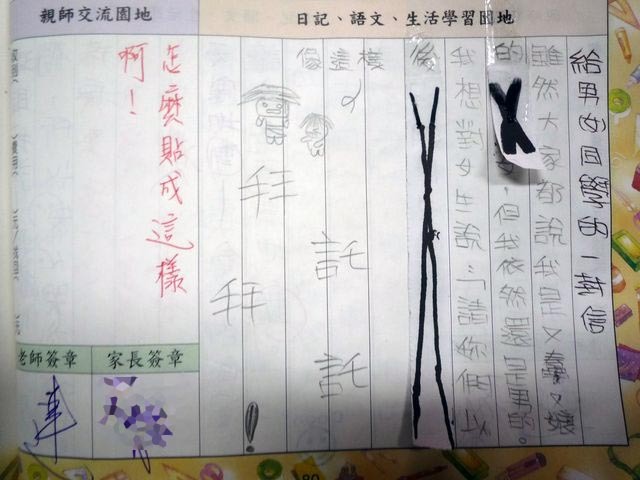 日記、語文、生活學習園地
親師交流園地
給男女同學的一封信
雖然大家都說我是又又
的,但我依然還是男的。
我想對女生說:「請妳們以
後
像這樣
託託
拜拜!
怎麼貼成這樣
啊!
家長簽章
老師簽章
80